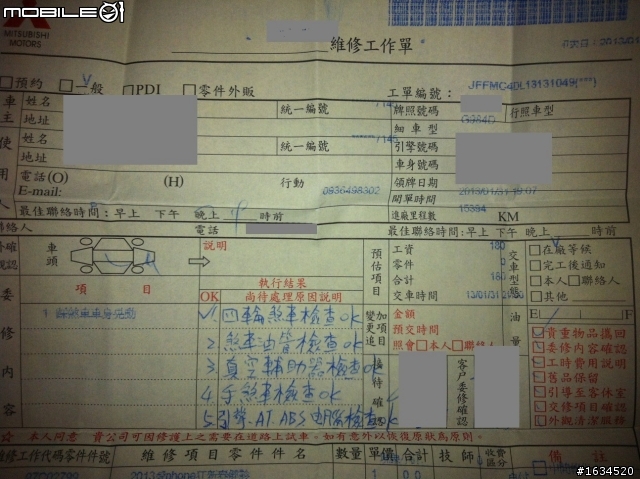 MOBILE01
MITSUBISHI MOTORS
維修工作單
預約 一般 PDI 零件外販
工單編號： JFFMC4DL13131049(***)
車主 姓名 統一編號 /145
地址
使用人 姓名 統一編號 /145
地址
電話(O) (H) 行動 0936498302
E-mail:
牌照號碼 行照車型
細車型
引擎號碼
車身號碼
領牌日期
開單時間 2013/01/31 19:07
進廠里程數 15384 KM
最佳聯絡時間：早上 下午 晚上 時前
最佳聯絡時間：早上 下午 晚上 時前
聯絡人 電話
車頭
說明
預估項目
工資 180
零件 0
合計 180
交車時間 13/01/31
交車型態
在廠等候
完工後通知
本人 聯絡人
其他
項 目
OK
執行結果
尚待處理原因說明
變加更項追目
金額
預交時間
照會 本人 聯絡人
油量
E F
委修內容
1. 四輪煞車檢查OK
2. 煞車油管檢查OK
3. 真空輔助器檢查OK
4. 手煞車檢查OK
5. 引擎.AT.ABS電腦檢查OK
接待確認
客戶委修確認
貴重物品攜回
委修內容確認
工時費用說明
舊品保留
引導至客休室
交修項目確認
外觀清潔服務
☆ 本人同意 貴公司可因修護上之需要在道路上試車。如有意外以恢復原狀為原則。
維修工作代碼零件件號 維修項目零件件名 數量 單價 合計 技師 收費區分 備註
#1634520